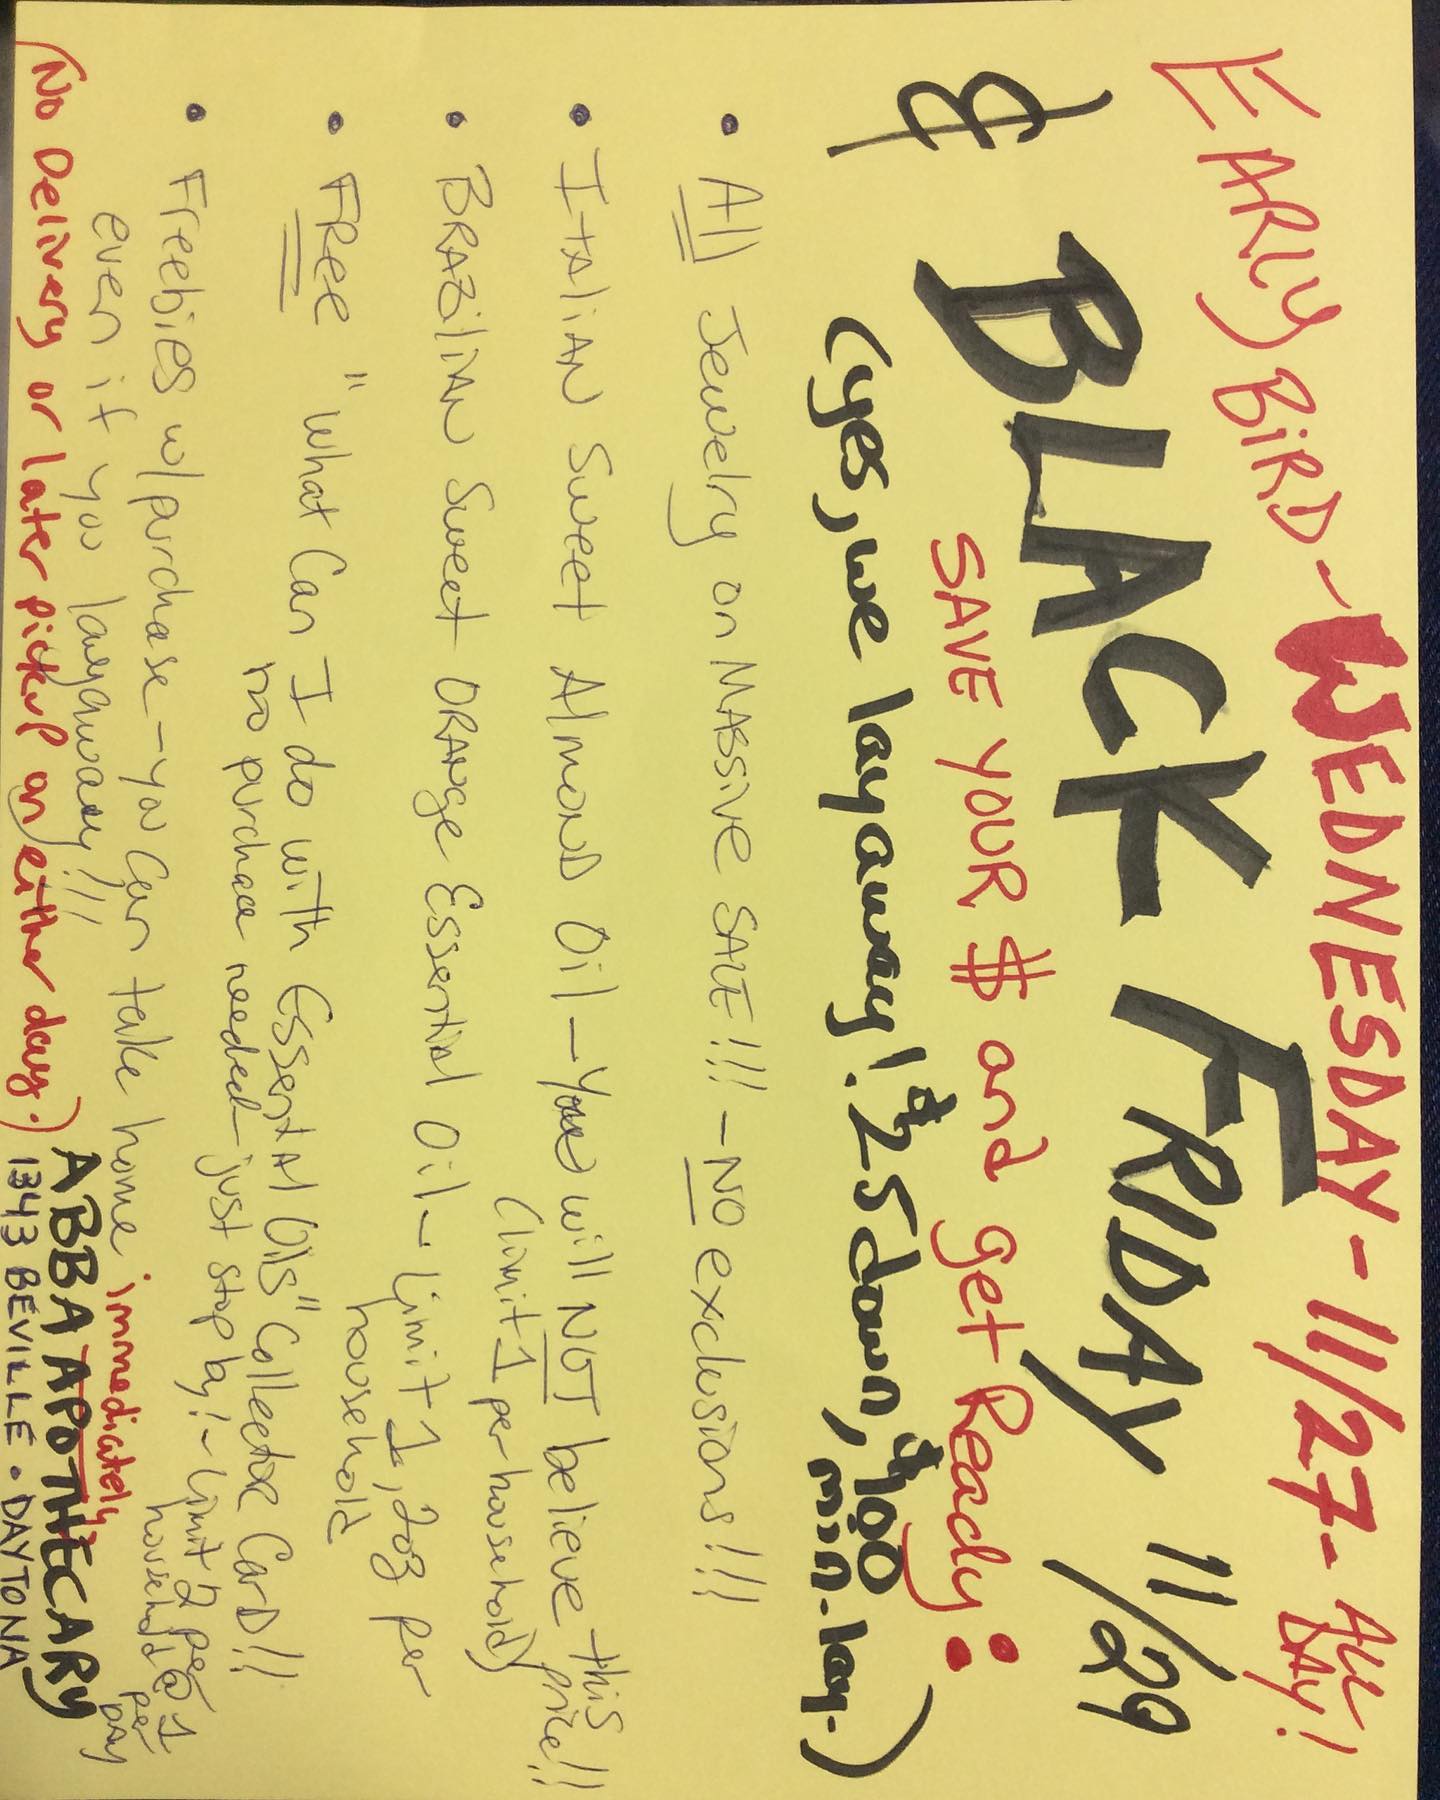 EARLY BIRD - WEDNESDAY - 11/27 - ALL DAY!
& BLACK FRIDAY 11/29
SAVE YOUR $ and get Ready:
(yes, we layaway! $25 down, $100 min-lay.)
• All Jewelry on MASSIVE SALE!!! - NO exclusions!!!
• Italian Sweet Almond Oil - You will NOT believe this price!!
(limit 1 per household)
• BRAZILIAN Sweet ORANGE Essential Oil - limit 1, 2oz per
household
• FREE "What Can I do with Essential Oils" Collector Card!!
no purchase needed - just stop by! - limit 2 per
household @ 1 per day
• Freebies w/purchase - you can take home immediately
even if you layaway!!!
(No Delivery or later pickup on either day.)
ABBA APOTHECARY
1343 BEVILLE • DAYTONA